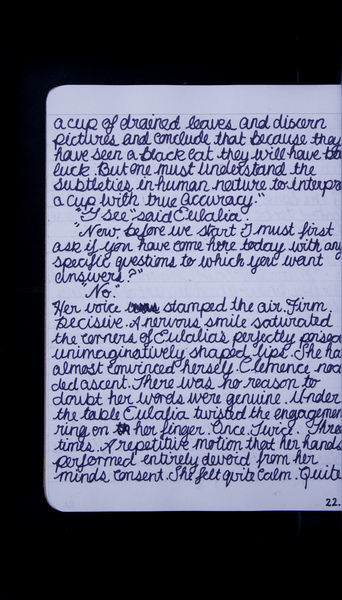 a cup of drained leaves and discern
pictures and conclude that because they
have seen a black cat they will have bad
luck. But one must understand the
subtleties in human nature to interpre
a cup with true accuracy."
"I see," said Eulalia.
"Now before we start I must first
ask if you have come here today with any
specific questions to which you want
answers?"
"No."
Her voice stamped the air. Firm.
Decisive. A nervous smile saturated
the corners of Eulalia's perfectly poised
unimaginatively shaped lips. She ha
almost convinced herself. Clemence nod
ded ascent. There was no reason to
doubt her words were genuine. Under
the table Eulalia twisted the engagemen
ring on her finger. Once. Twice. Three
times. A repetitive motion that her hands
performed entirely devoid from her
minds consent. She felt quite calm. Quite
22.